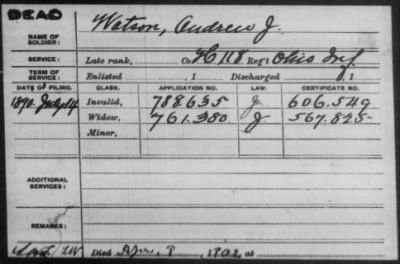 DEAD
Watson, Andrew J.
NAME OF SOLDIER:
SERVICE: Late rank, Co. H, 118 Reg't Ohio Inf.
TERM OF SERVICE: Enlisted , 1 Discharged , 1
DATE OF FILING. CLASS. APPLICATION NO. LAW. CERTIFICATE NO.
1890. July 14 Invalid, 788.635 J 606.549
Widow, 761.380 J 567.825
Minor,
ADDITIONAL SERVICES:
REMARKS:
Died Apr. 8, 1902, at